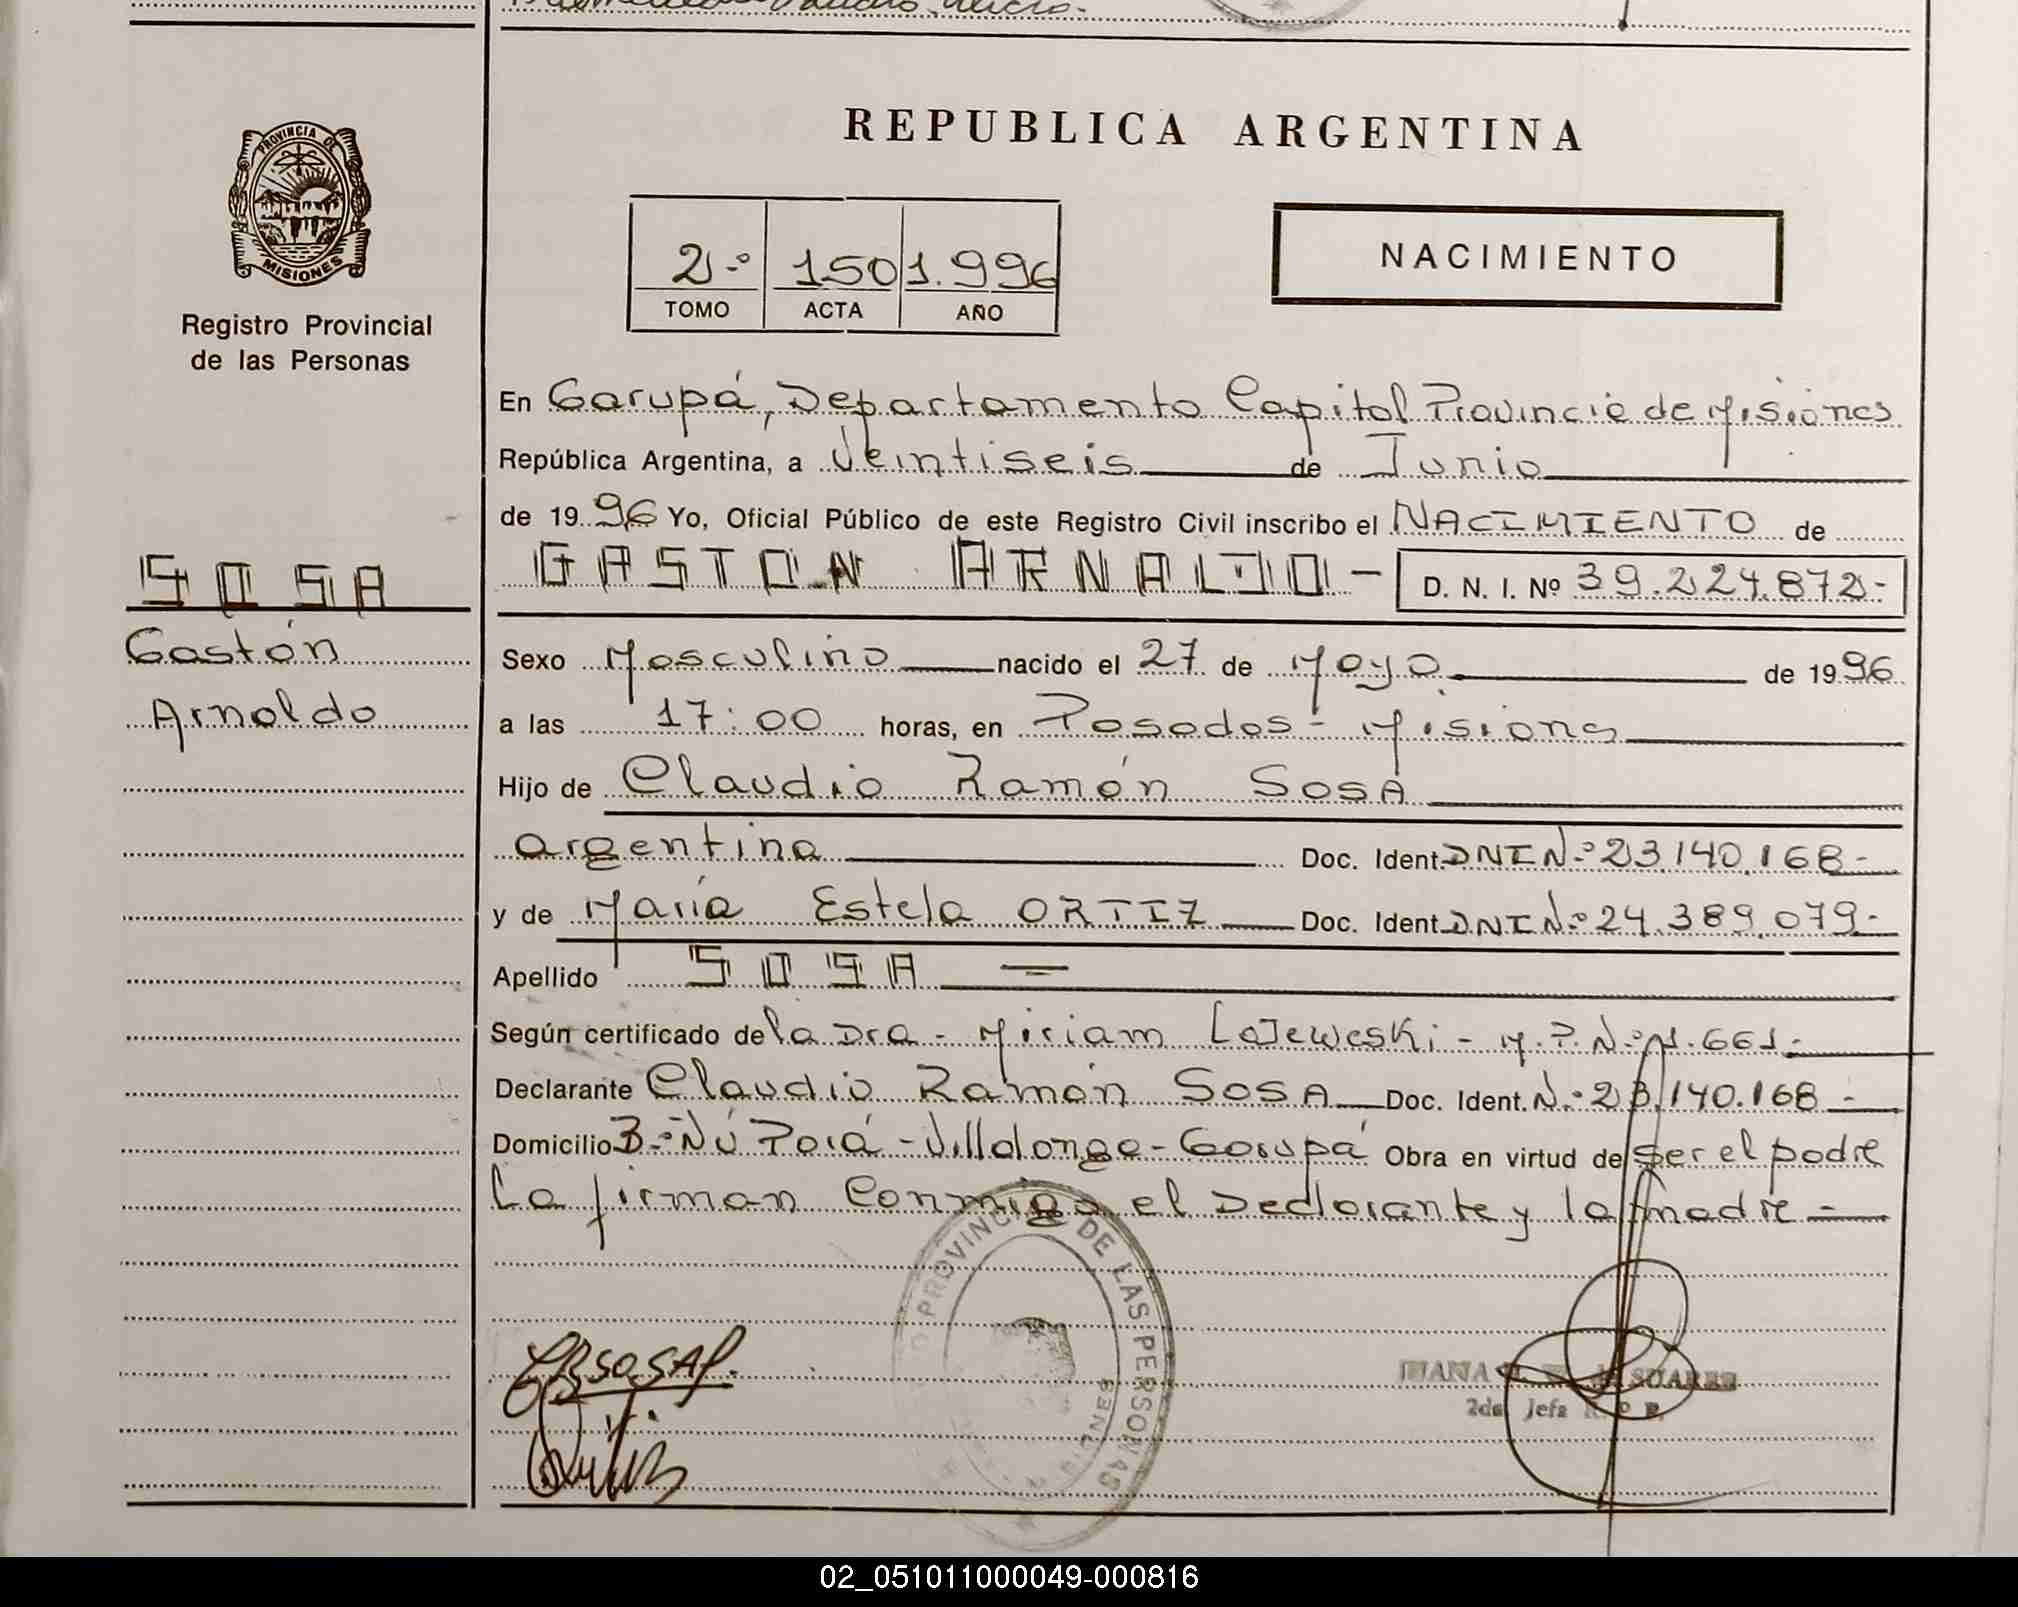 REPUBLICA ARGENTINA
PROVINCIA DE
MISIONES
Registro Provincial
de las Personas
2º 150 1.996
TOMO ACTA AÑO
NACIMIENTO
En Garupá, Departamento Capital Provincia de Misiones
República Argentina, a Veintiseis de Junio
de 1996 Yo, Oficial Público de este Registro Civil inscribo el NACIMIENTO de
SOSA
Gastón
Arnaldo
GASTON ARNALDO - D. N. I. Nº 39.224.872-
Sexo Masculino nacido el 27 de Mayo de 1996
a las 17:00 horas, en Posadas - Misiones
Hijo de Claudio Ramón SOSA
argentina Doc. Ident. DNI Nº 23.140.168-
y de María Estela ORTIZ Doc. Ident. DNI Nº 24.389.079-
Apellido SOSA =
Según certificado de la Dra - Miriam - M.P. Nº 1.661-
Declarante Claudio Ramón SOSA Doc. Ident. Nº 23.140.168 -
Domicilio Bº Ñú Porá - Villalonga - Garupá Obra en virtud de ser el padre
La firman conmigo el Declarante y la madre -
PROVINCIAL DE LAS PERSONAS
SUAREZ
2da Jefa
02_051011000049-000816